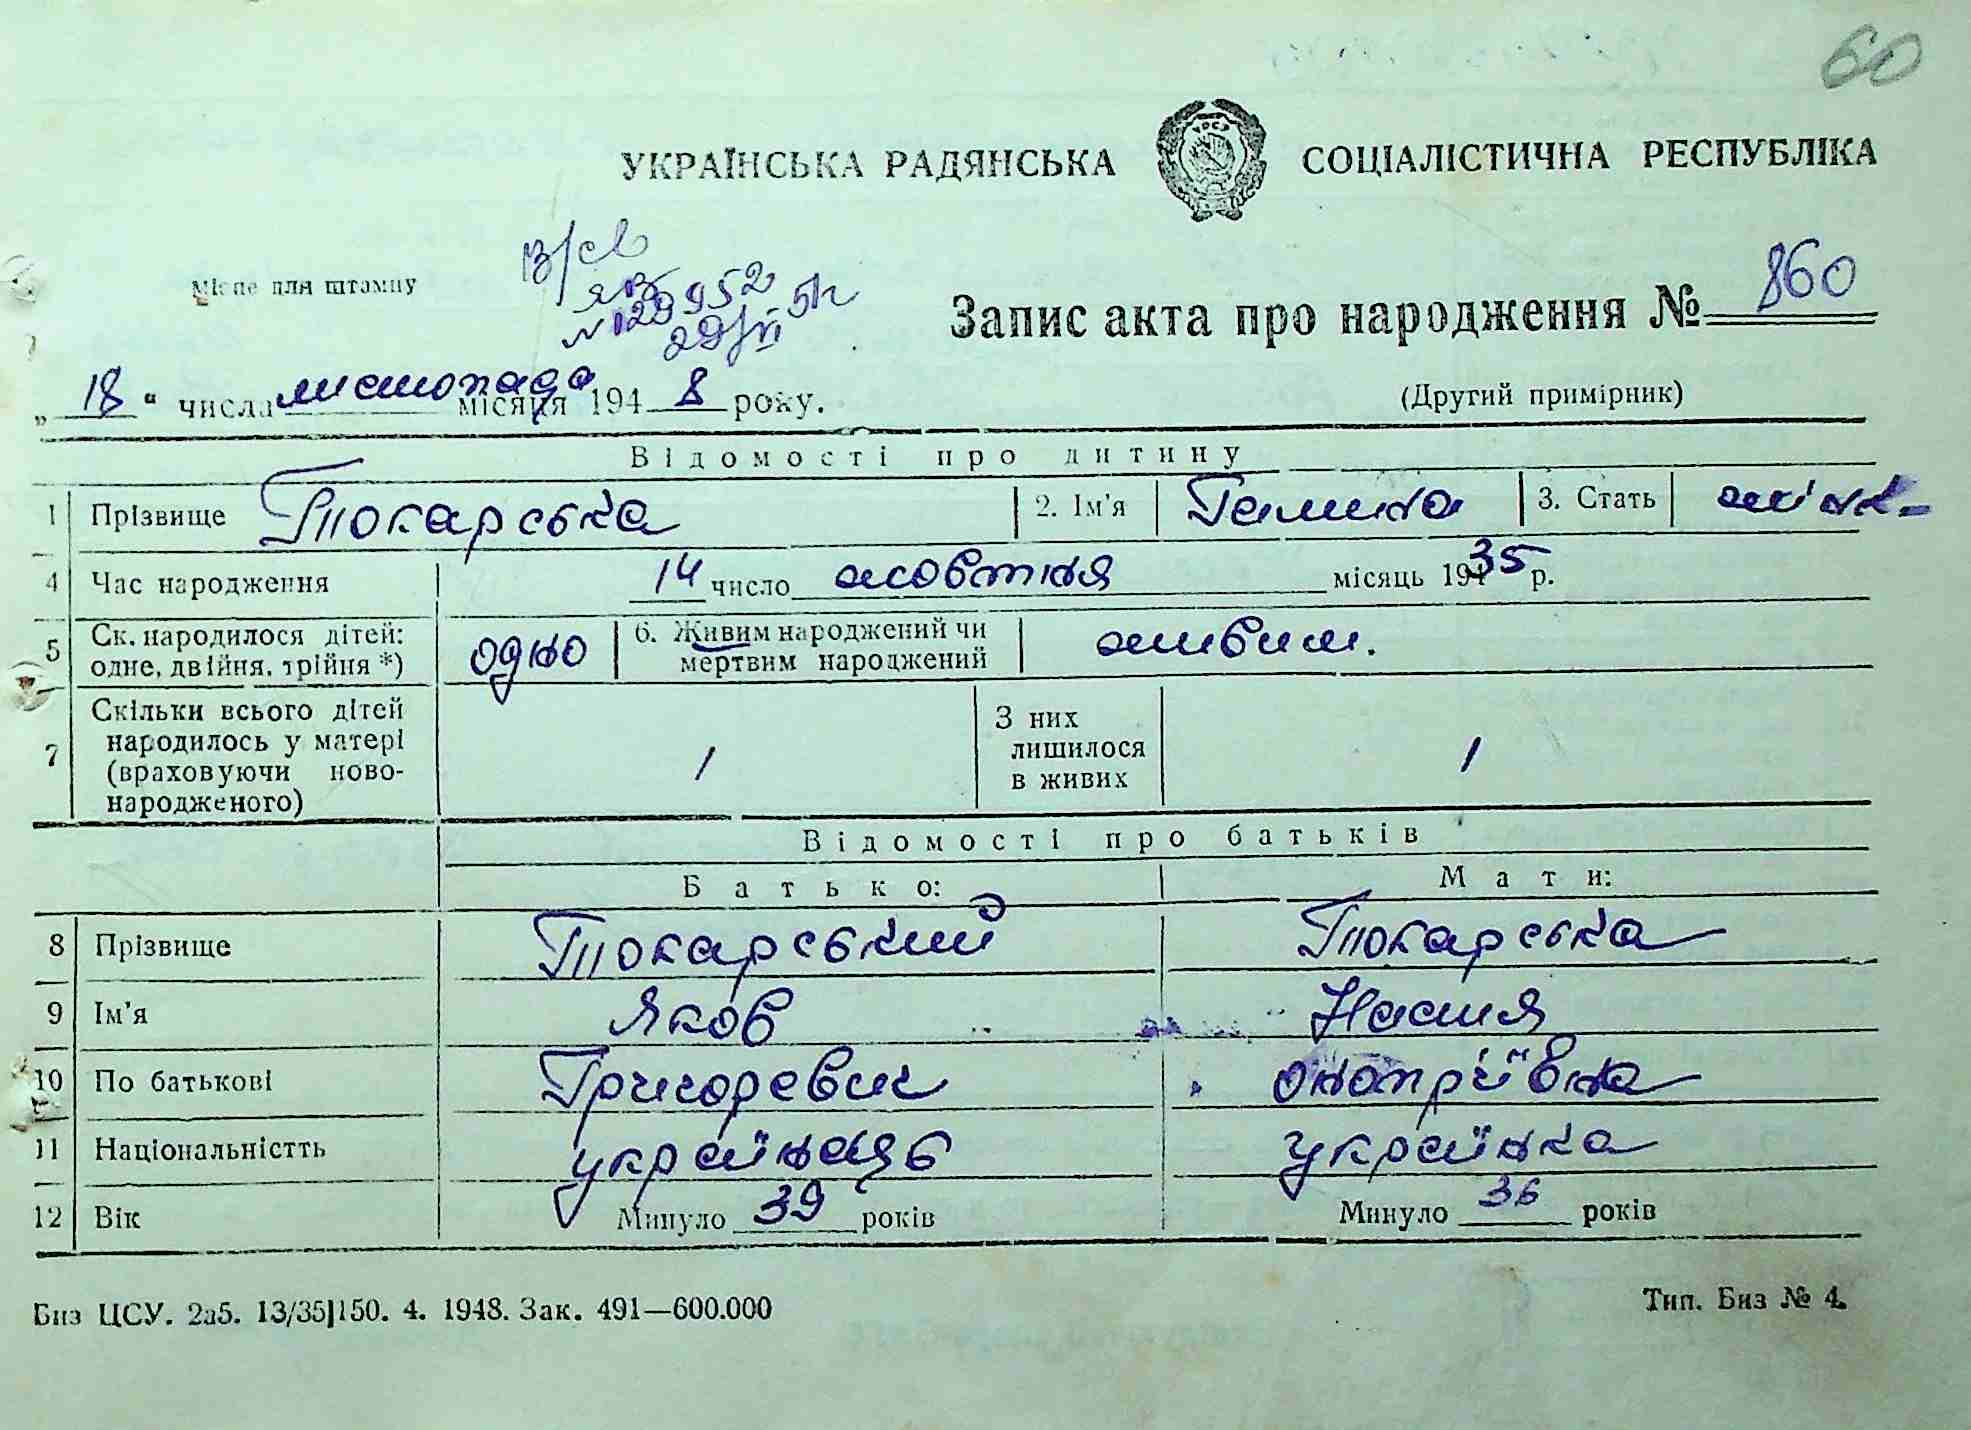 60
УКРАЇНСЬКА РАДЯНСЬКА СОЦІАЛІСТИЧНА РЕСПУБЛІКА
Місце для штампу
в/св
ЯВ
№ 129952
29/VI 51г
Запис акта про народження № 860
„18“ числа листопада місяця 1948 року.
(Другий примірник)
Відомості про дитину
1 Прізвище Токарська 2. Ім'я Галина 3. Стать жіноч-
4 Час народження 14 число жовтня місяць 1935 р.
5 Ск. народилося дітей: одне, двійня, трійня *) одно 6. Живим народжений чи мертвим народжений живим.
7 Скільки всього дітей народилось у матері (враховуючи ново-народженого) 1 З них лишилося в живих 1
Відомості про батьків
Батько: Мати:
8 Прізвище Токарський Токарська
9 Ім'я Яков Настя
10 По батькові Григоревич Онопріївна
11 Національністть українець українка
12 Вік Минуло 39 років Минуло 36 років
Биз ЦСУ. 2а5. 13/35|150. 4. 1948. Зак. 491—600.000 Тип. Биз № 4.